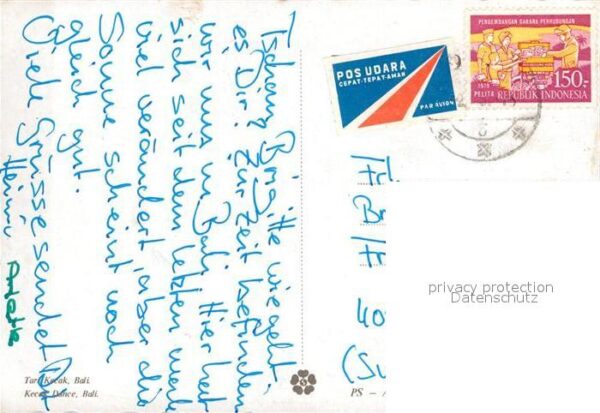 Tschau Brigitte wie geht
es Dir? Zur Zeit befinden
wir uns in Bali. Hier hat
sich seit dem letzten mal
viel verändert, aber die
Sonne scheint noch
gleich gut.
Viele Grüsse sendet Dir
Heinri
POS UDARA
CEPAT-TEPAT-AMAN
PAR AVION
PENGEMBANGAN SARANA PERHUBUNGAN
1978
PELITA
150.-
REPUBLIK INDONESIA
privacy protection
Datenschutz
Tari Kecak, Bali.
Kecak Dance, Bali.
PS -